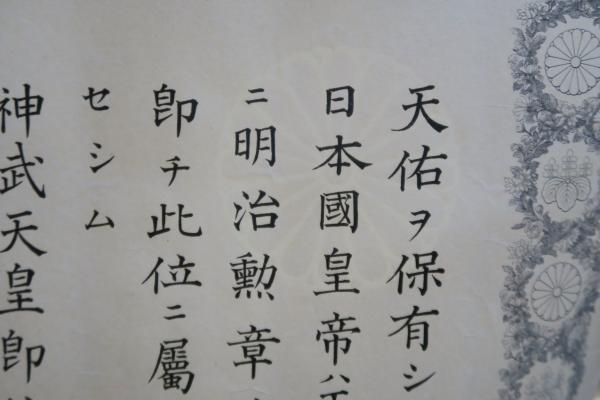 天佑ヲ保有シ
日本國皇帝ハ
ニ明治勲章
卽チ此位ニ屬
セシム
神武天皇卽